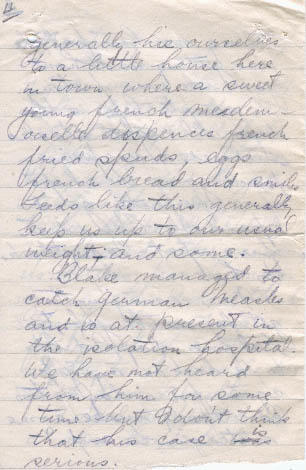 4
generally hie ourselves
to a little house here
in town where a sweet
young french meadem-
oiselle dispences french
fried spuds, eggs
french bread and smiles
feeds like this generally
keep us up to our usual
weight, and some.
Blake managed to
catch German Measles
and is at present in
the isolation hospital.
We have not heard
from him for some
time but I don't think
that his case is
serious.